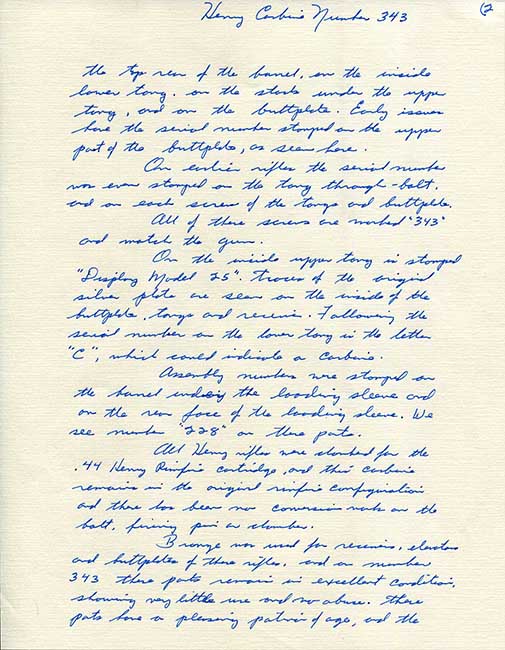 Henry Carbine Number 343
(2
the top rear of the barrel, on the inside
lower tang, on the stock under the upper
tang, and on the buttplate. Early issues
have the serial number stamped on the upper
part of the buttplate, as seen here.
On earlier rifles the serial number
was even stamped on the tang through-bolt,
and on each screw of the tangs and buttplate.
All of these screws are marked "343"
and match the gun.
On the inside upper tang is stamped
"Display Model 25". traces of the original
silver plate are seen on the inside of the
buttplate, tangs and receiver. Following the
serial number on the lower tang is the letter
"C", which could indicate a carbine.
Assembly numbers were stamped on
the barrel under the loading sleeve and
on the rear face of the loading sleeve. We
see number "228" on these parts.
All Henry rifles were chambered for the
.44 Henry Rimfire cartridge, and this carbine
remains in the original rimfire configuration
and there has been no conversion work on the
bolt, firing pin or chamber.
Bronze was used for receivers, elevators
and buttplates of these rifles, and on number
343 these parts remain in excellent condition,
showing very little use and no abuse. these
parts have a pleasing patina of age, and the